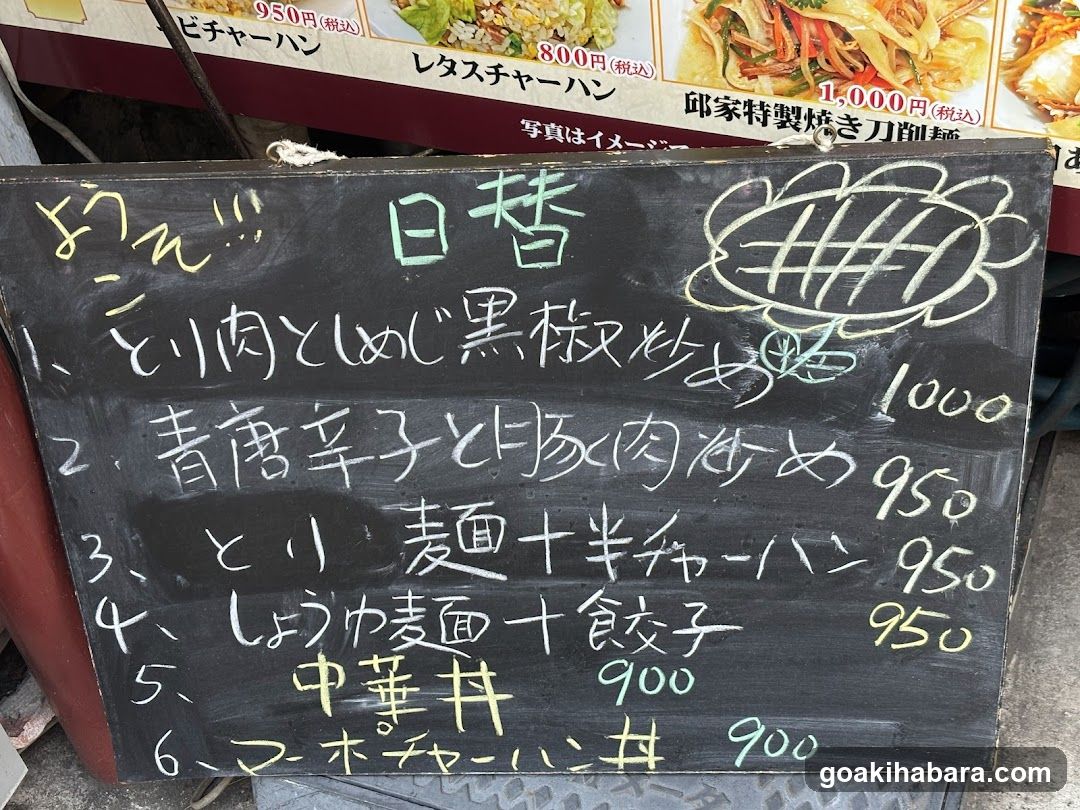 950円(税込)
ビチャーハン
800円(税込)
レタスチャーハン
1,000円(税込)
邱家特製焼き刀削麺
写真はイメージ
ようこそ!!!
日替
1、とり肉としめじ黒椒炒め 1000
2、青唐辛子と豚肉炒め 950
3、とり 麺+半チャーハン 950
4、しょうゆ麺+餃子 950
5、中華丼 900
6、マーボーチャーハン丼 900
goakihabara.com